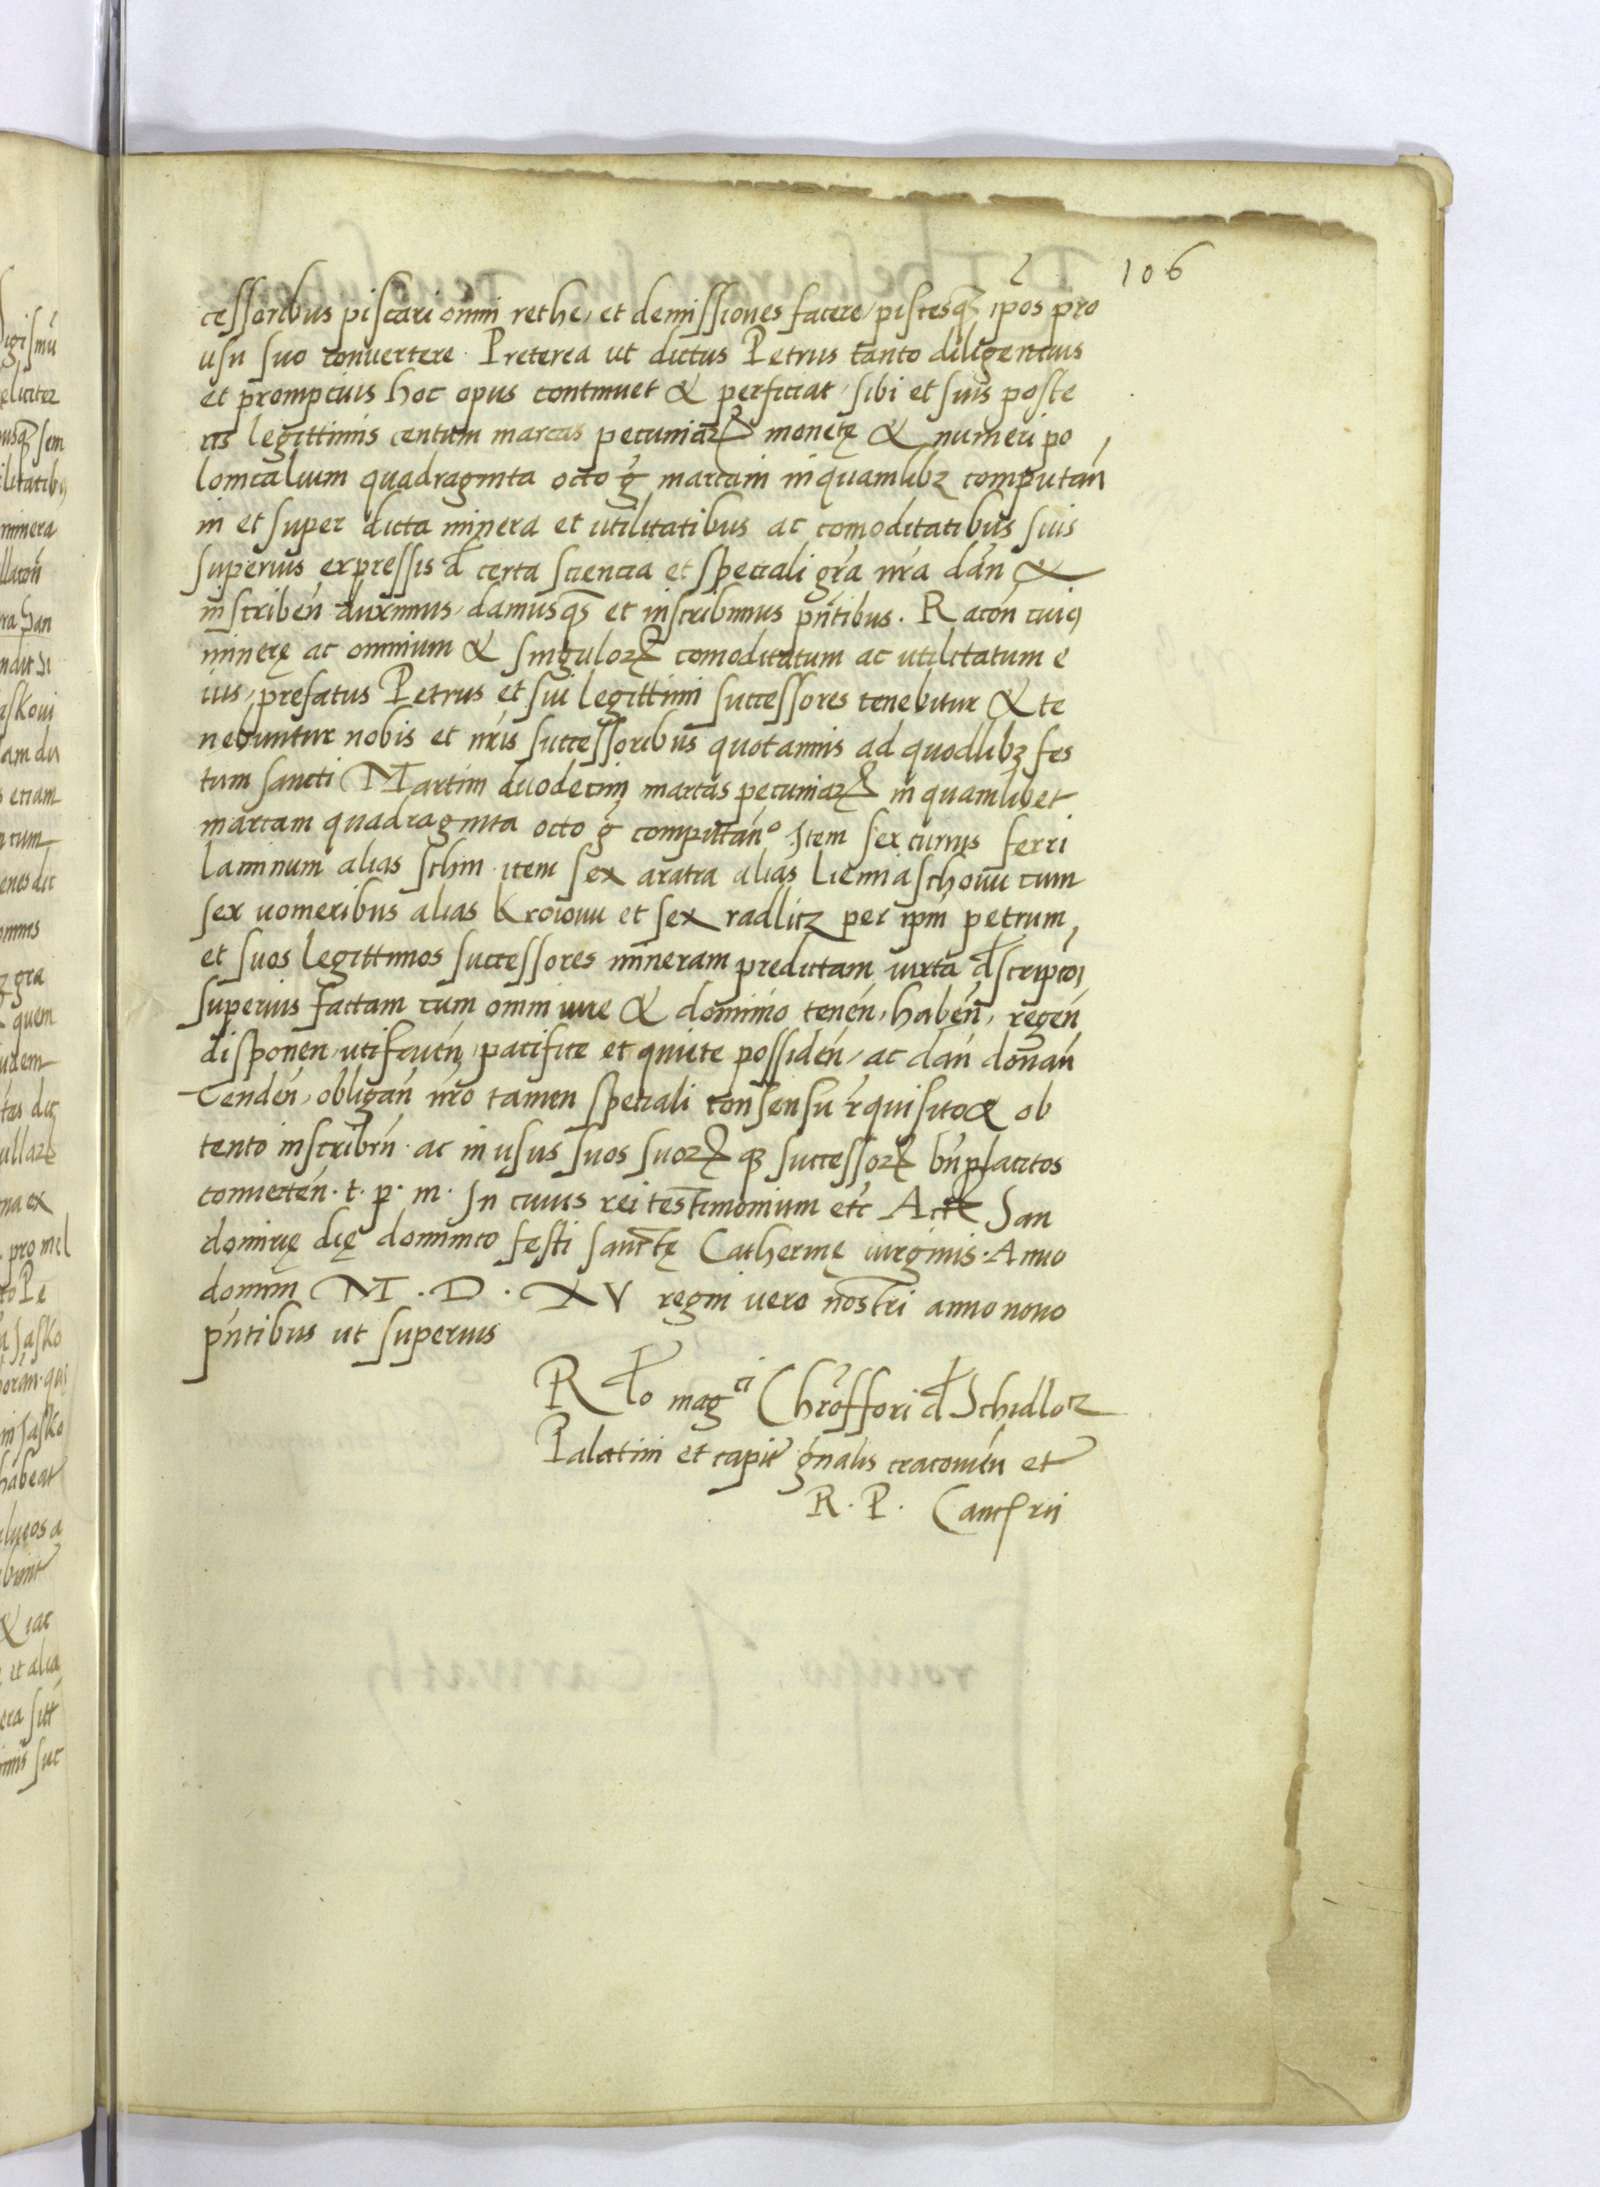 106
cessoribus piscari omni rethe, et demissiones facere, piscesq̄ ipōs pro
usu suo convertere. Preterea ut dictus Petrus tanto diligentius
et prompcius hoc opus continuet & perficiat, sibi et suis poste
ris legittimis centum marcas pecuniaꝝ monetę & numeri po
lonicalium quadraginta octo g̃ marcam in quamlibꝫ computań
in et super dicta minera et utilitatibus ac comoditatibus suis
superius expressis đ certa sciencia et speciali grã nrã dań &
inscribeń duximus, damusq̄ et inscribimus pñtibus. Racoń cuiꝯ
minerę ac omnium & singuloꝝ comoditatum ac utilitatum e
ius, prefatus Petrus et sui legittimi successores tenebitur & te
nebuntur nobis et nrīs successoribus quotannis ad quodlibꝫ fes
tum sancti Martini duodecim marcas pecuniaꝝ in quamlibet
marcam quadraginta octo g̃ computań. Item sex currus ferri
laminum alias schin item sex aratra alias Liemiaschowu cum
sex uomeribus alias Kroiouu et sex radlitz per ipm̄ petrum
et suos legittimos successores mineram predictam iuxta đscripcoī
superius factam cum omni iure & dominio teneń, habeń, regeń
disponeń, utifrueń, pacifice et quiete possideń, ac dań donań
Cendeń, obligań nrō tamen speciali consensu r̃quisito & ob
tento inscribeń. ac in usus suos suoꝝ qꝫ successoꝝ bn̄placitos
converteń. t. p. m. In cuius rei testimonium etc̃ Act San
domirię dię dominico festi sanctę Catherinę virginis. Anno
domini M. D. XV regni vero nostri anno novo
pñtibus ut superius
R đlo mag^ci Chrōffori đ Schidlotz
Palatini et capit̃ gñalis cracovień et
R. P. Canc̃rii